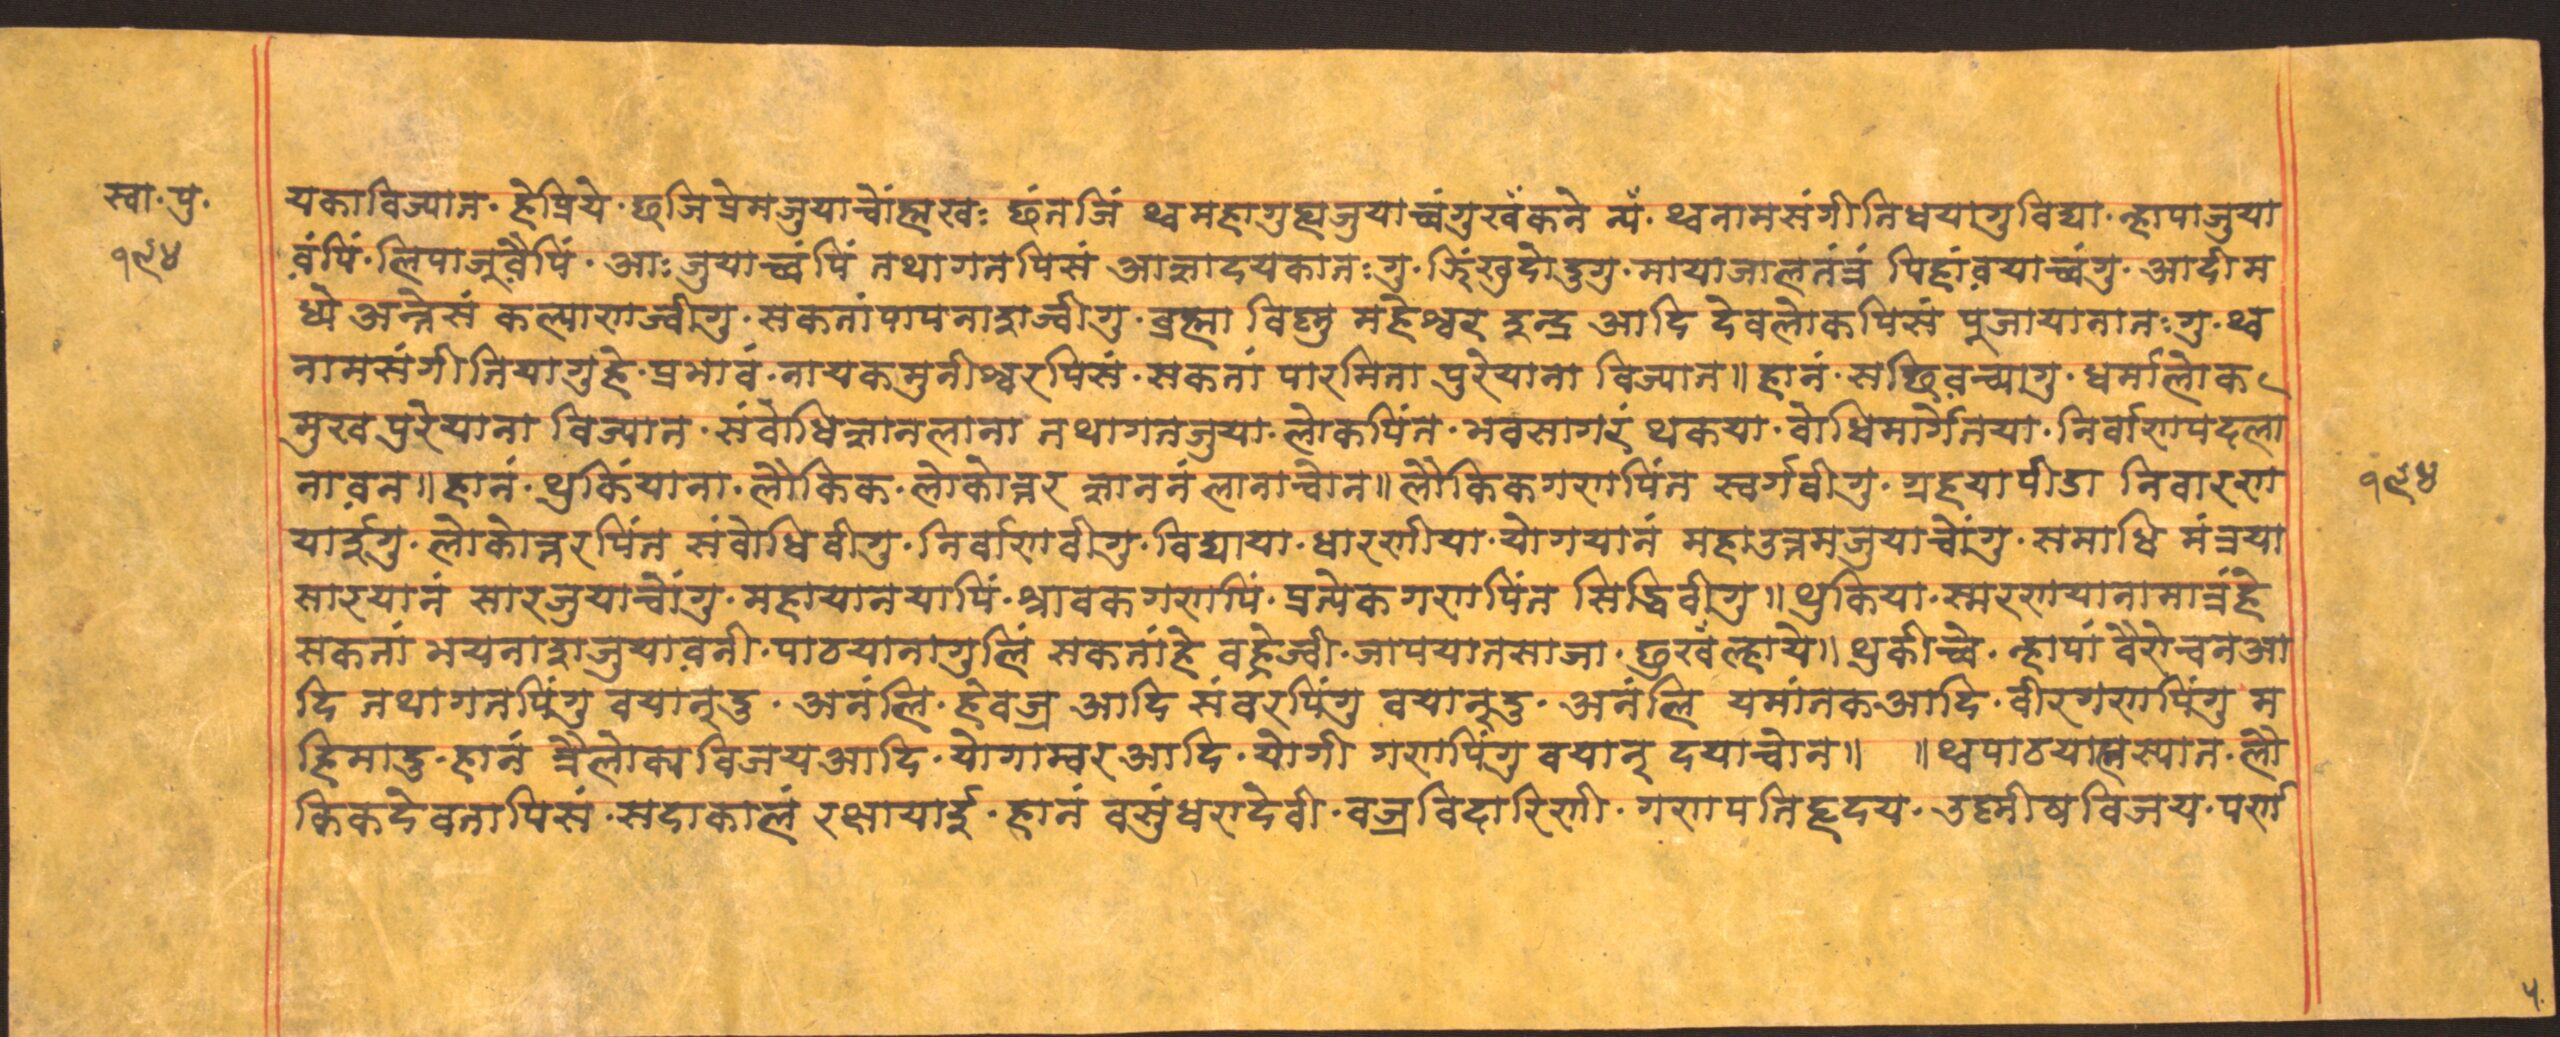 स्वा·पु·
१९४
यकाविज्यात· हेप्रिये· छजिप्रेमजुयाच्वोंह्मखः छंतजिं थ्वमहागुह्यजुयाच्वंगुखँकने न्यँ· थ्वनामसंगीतिधयागुविद्या· न्हापाजुया
वंपिं· लिपाजूवैपिं· आःजुयाच्वंपिं तथागतपिसं आज्ञादयकातःगु· झिंखुदोदुगु· मायाजालतंत्रं पिहांवयाच्वंगु· आदीम
ध्ये अन्त्रेसं कल्याणज्वीगु· सकतांपापनाशज्वीगु· ब्रह्मा विष्णु महेश्वर इन्द्र आदि देवलोकपिसं पुजायानातःगु· थ्व
नामसंगीतियागुहे· प्रभावं· नायकमुनीश्वरपिसं· सकतां पारमिता पुरेयाना विज्यात॥ हानं· सछिवच्यागु· धर्मालोक
मुखपुरेयाना विज्यात· संवोधिज्ञानलाना तथागतजुया· लोकपिंत· भवसागरं थकया· वोधिमार्गेतया· निर्वाणपदला
नावन॥ हानं· थुकिंयाना· लौकिक· लोकोत्तर ज्ञाननंलानाच्वोन॥ लौकिकगणपिंत स्वर्गवीगु· ग्रहयापीडा निवारण
यार्इगु· लोकोत्तरपिंत संवोधिवीगु· निर्वाणवीगु· विद्याया· धारणीया· योगयानं महाउत्तमजुयाच्वोंगु· समाधि मंत्रया
सारयानं सारजुयाच्वोंगु· महायानयापिं· श्रावकगणपिं· प्रत्येकगणपिंत सिद्धिवीगु॥ थुकिया· स्मरणयानामात्रंहे
सकतां भयनाशजुयावनी· पाठयानागुलिं सकतांहे वहेज्वी· जापयातसाजा· छुखँल्हाये॥ थुकीच्वे· न्हापां वैरोचनआ
दि तथागतपिंगु वयानुदु· अनंलि· हेवज्र आदि संवरपिंगु वयानुदु· अनंलि यमांतकआदि· वीरगणपिंगु म
हिमादु· हानं त्रैलोक्यविजयआदि· योगाम्वरआदि· योगी गणपिंगु वयान् दयाच्वोन॥ ॥ थ्वपाठयाह्मस्यात· लौ
किकदेवतापिसं· सदाकालं रक्षायार्इ· हानं वसुंधरादेवी· वज्रविदारिणी· गणपतिहृदय· उष्णीषविजय· पर्ण
१९४
५·